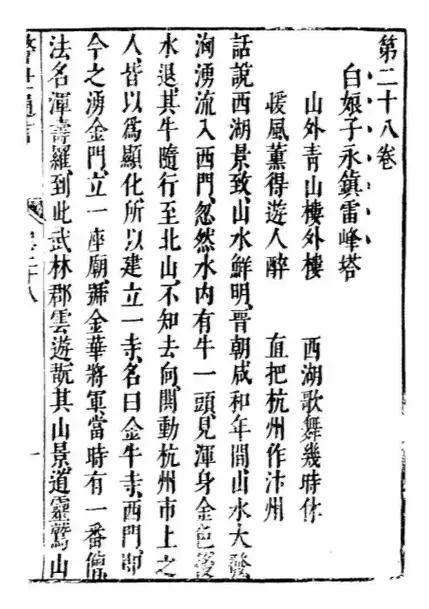 第二十八卷
白娘子永鎮雷峰塔
山外青山樓外樓　西湖歌舞幾時休
煖風薰得遊人醉　直把杭州作汴州
話說西湖景致、山水鮮明、晉朝咸和年間、山水大發
洶湧流入西門、忽然水內有牛一頭、見渾身金色、後
水退、其牛隨行至北山、不知去向、鬨動杭州市上之
人、皆以爲顯化、所以建立一寺、名曰金牛寺、西門、即
今之湧金門、立一座廟、號金華將軍、當時有一番僧、
法名渾壽羅、到此武林郡雲遊、翫其山景、道靈鷲山
卷二十八
一